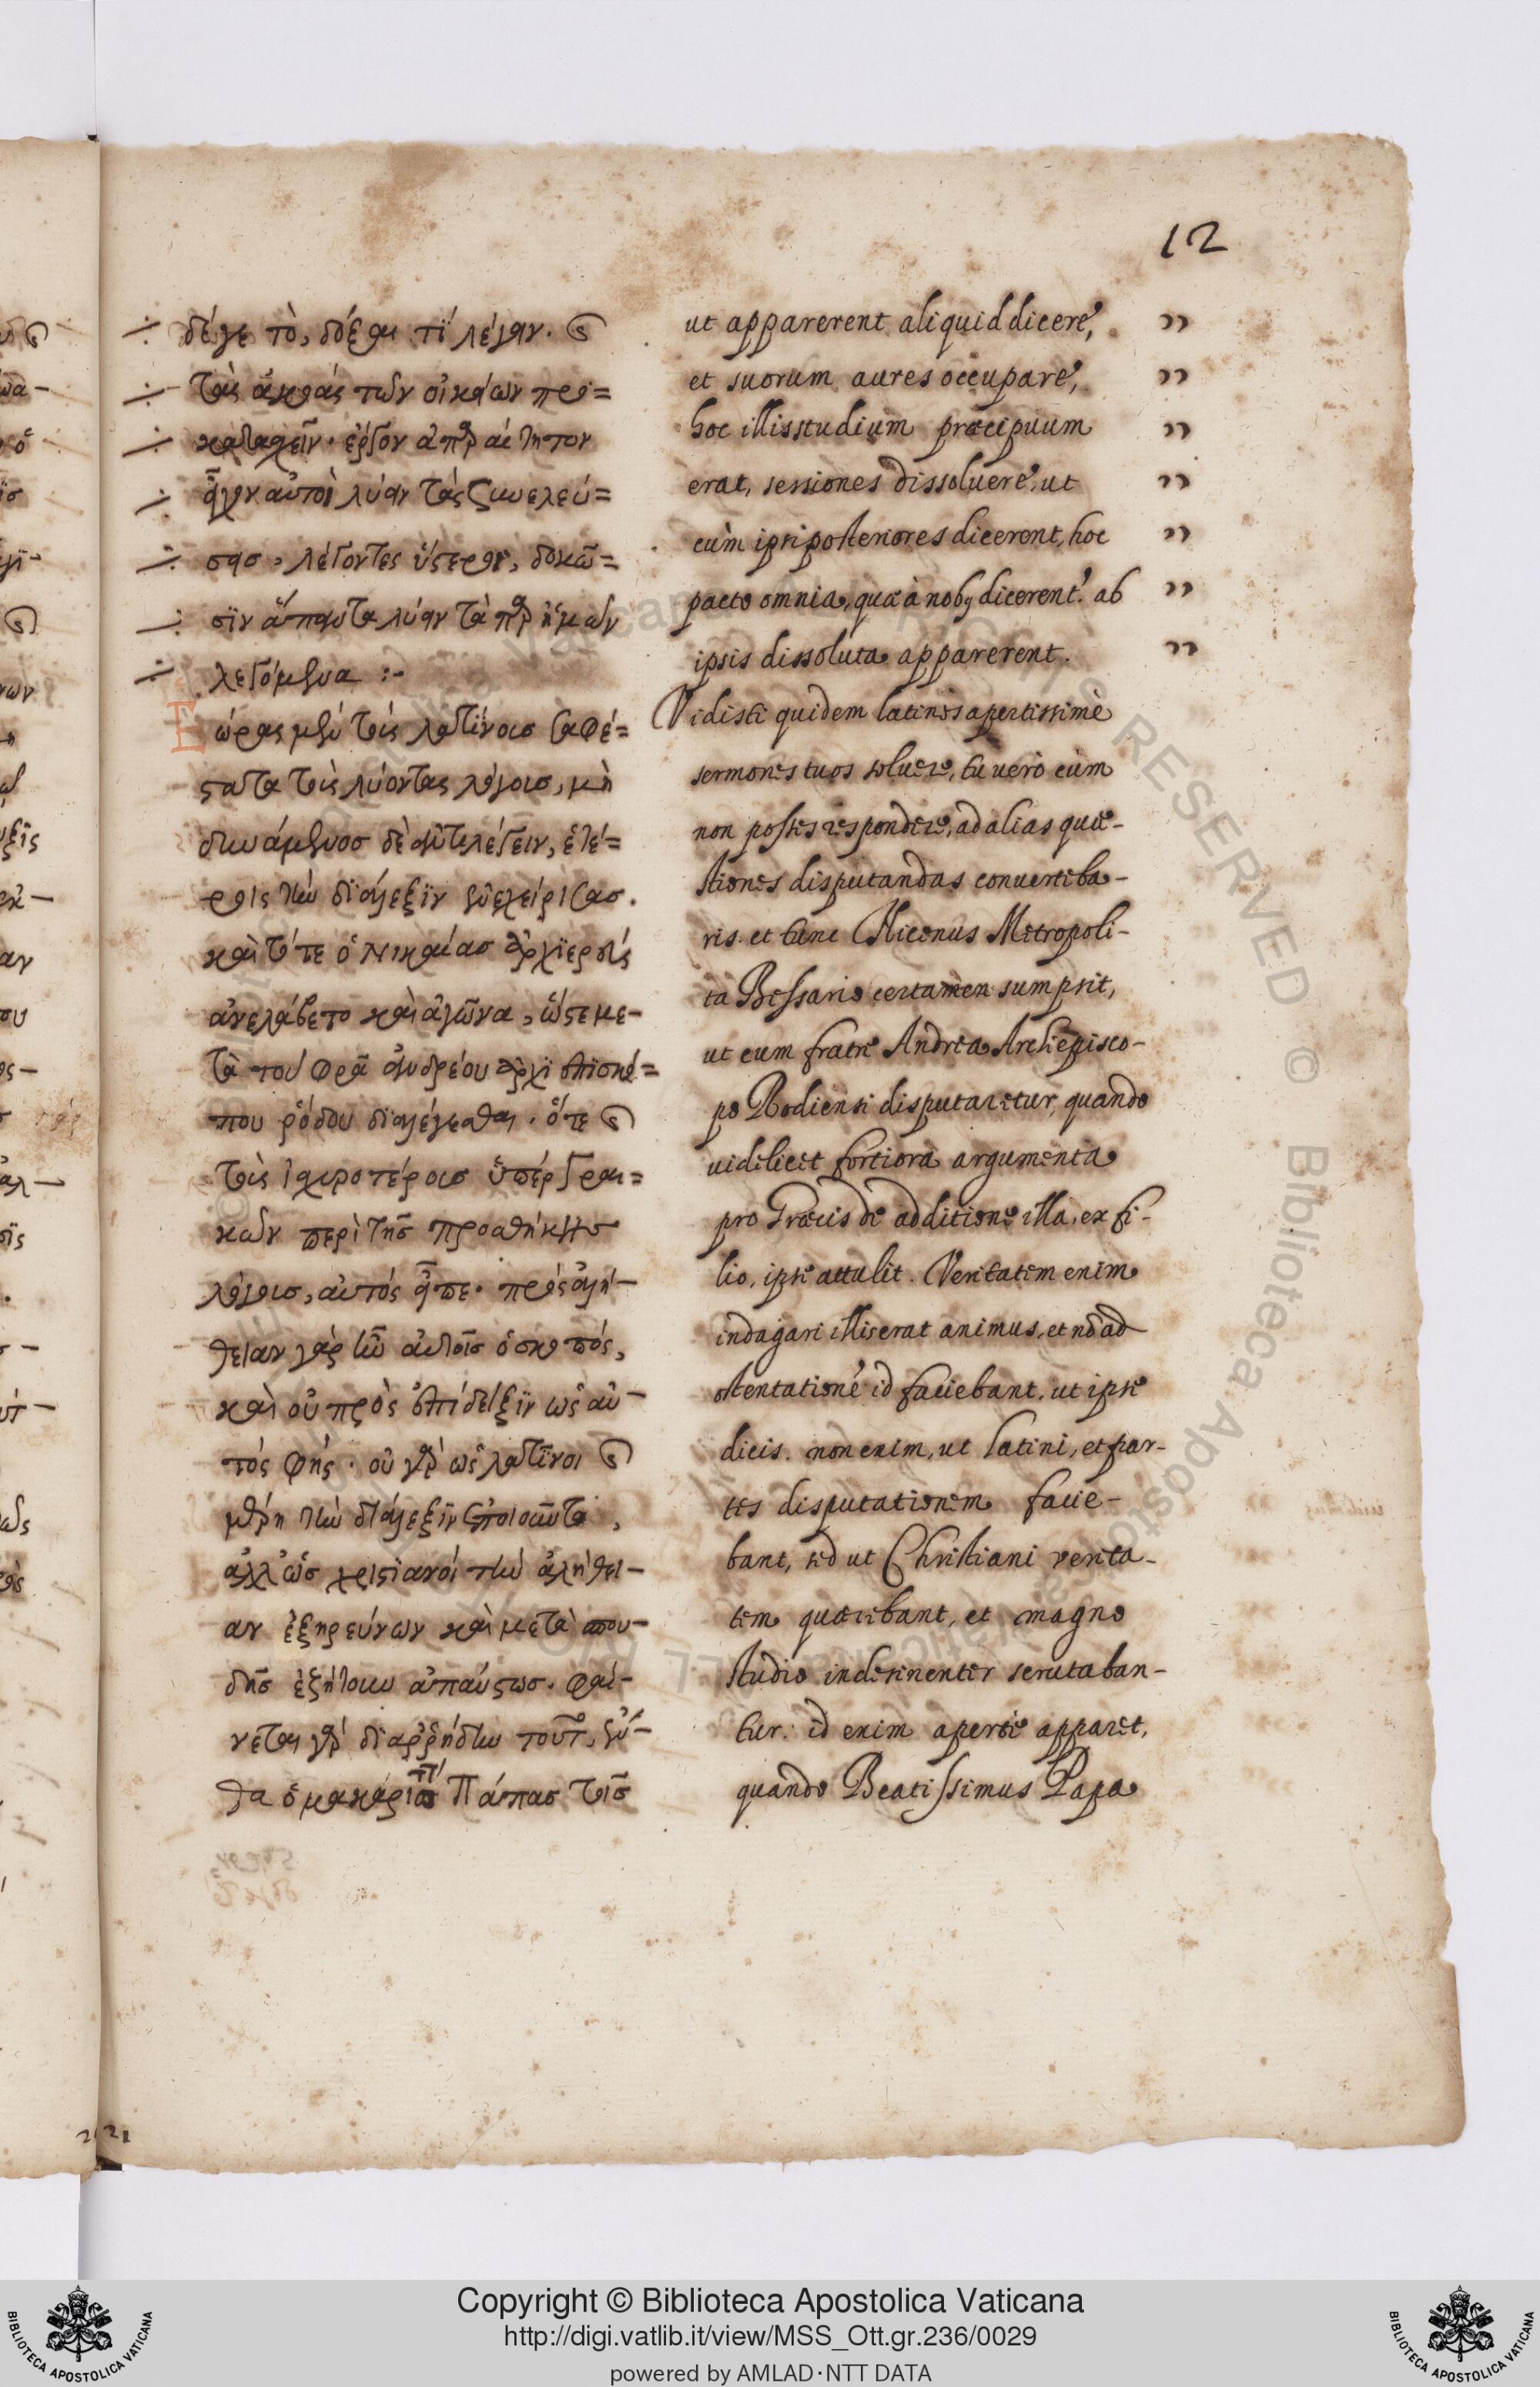 12
δέγε τὸ, δόξαι τῒ λέγειν. καὶ
τὰς ἀκοάς τῶν οἰκείων προ=
καταχεῖν. ἔργον ἀπαραίτητον
εἶχον αὐτοὶ λύειν τὰς συνελεύ=
σεισ, λέγοντες ὕστεροι, δοκῶ=
σϊν ἅπαντα λύειν τὰ παρ' ἡμῶν
λεγόμενα :-
Εώρας μὲν τοὶς λατίνοισ σαφέ=
στατα τοὶς λύοντας λόγοισ, μὴ
δυνάμενοσ δὲ ἀντιλέγειν, ἑτέ=
ροις τὴν διάλεξϊν ἐνεχείρισασ.
καὶ τότε ὁ Νικαίασ ἀρχϊερεὺς
ἀνελάβετο καὶ ἀγῶνα, ὥστε με-
τὰ τοῦ φρᾶ ἀνδρέου ἀρχϊεπϊσκό=
που ῥόδου διαλέγεσθαι. ὅτε καὶ
τοὶς ἰσχυροτέροισ ὑπέρ γραι=
κῶν περὶ τῆσ προσθήκησ
λόγοισ, αὐτός εἶπε. πρὸς ἀλή-
θειαν γὰρ ἦν αὐτοῖσ ὁ σκοπός,
καὶ οὐ πρὸς ἐπίδείξϊν ὡς αὐ-
τός φής. οὐ γὰρ ὡς λατῖνοι καὶ
μέρη τὴν διάλεξϊν ἐποιοῦντο,
ἀλλ' ὡσ χριστϊανοί τὴν ἀλήθει-
αν ἐξηρεύνων καὶ μετὰ σπου-
δῆσ ἐξήτουν ἀπαύστωσ. φαί-
νεται γὰρ διαρρήδην τοῦτο, ἔν-
θα ὁ μακάριοσ Πάπασ τοῖσ
ut apparerent aliquid dicere,
et suorum aures occupare,
hoc illis studium præcipuum
erat, sessiones dissolvere, ut
cùm ipsi posteriores dicerent, hoc
pacto omnia, quæ à nobis dicerent.' ab
ipsis dissoluta apparerent.
Vidisti quidem latinos apertissimè
sermones tuos solvere, tu verò cùm
non posses respondere, ad alias quæ-
stiones disputandas convertiba-
ris. et tunc Nicenus Metropoli-
ta Bessario certamen sumpsit,
ut cum fratre Andrea Archiepisco-
po Rodiensi disputaretur, quando
uidelicet fortiora argumenta
pro Græcis de additione illa, ex fi-
lio, ipse attulit. Veritatem enim
indagari illis erat animus, et nõ ad
ostentationé id faciebant, ut ipse
dicis. non enim, ut latini, et par-
tes disputationem facie-
bant, sed ut Christiani verita-
tem quærebant, et magno
studio indesinenter scrutaban-
tur. id enim aperte apparet,
quando Beatissimus Papa
Copyright © Biblioteca Apostolica Vaticana
http://digi.vatlib.it/view/MSS_Ott.gr.236/0029
powered by AMLAD·NTT DATA